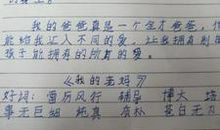 我的爸爸真是一个全才爸爸,
能给我注入不同的爱,让我拥有别
孩子能拥有的所有的爱。
《我的老妈》
好词:雷厉风行 辅导 博大
事无巨细 纯真 质朴 苍白无力